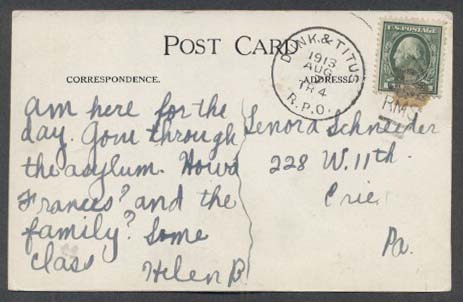 POST CARD
CORRESPONDENCE.
ADDRESS
am here for the
day. Gone through
the asylum. Hows
Frances? and the
family? Some
class
Helen B
DUNK. & TITUS
1913
AUG
TR 4
R.P.O.
U.S. POSTAGE
RMS
Lenora Schneider
228 W. 11th.
Erie
Pa.